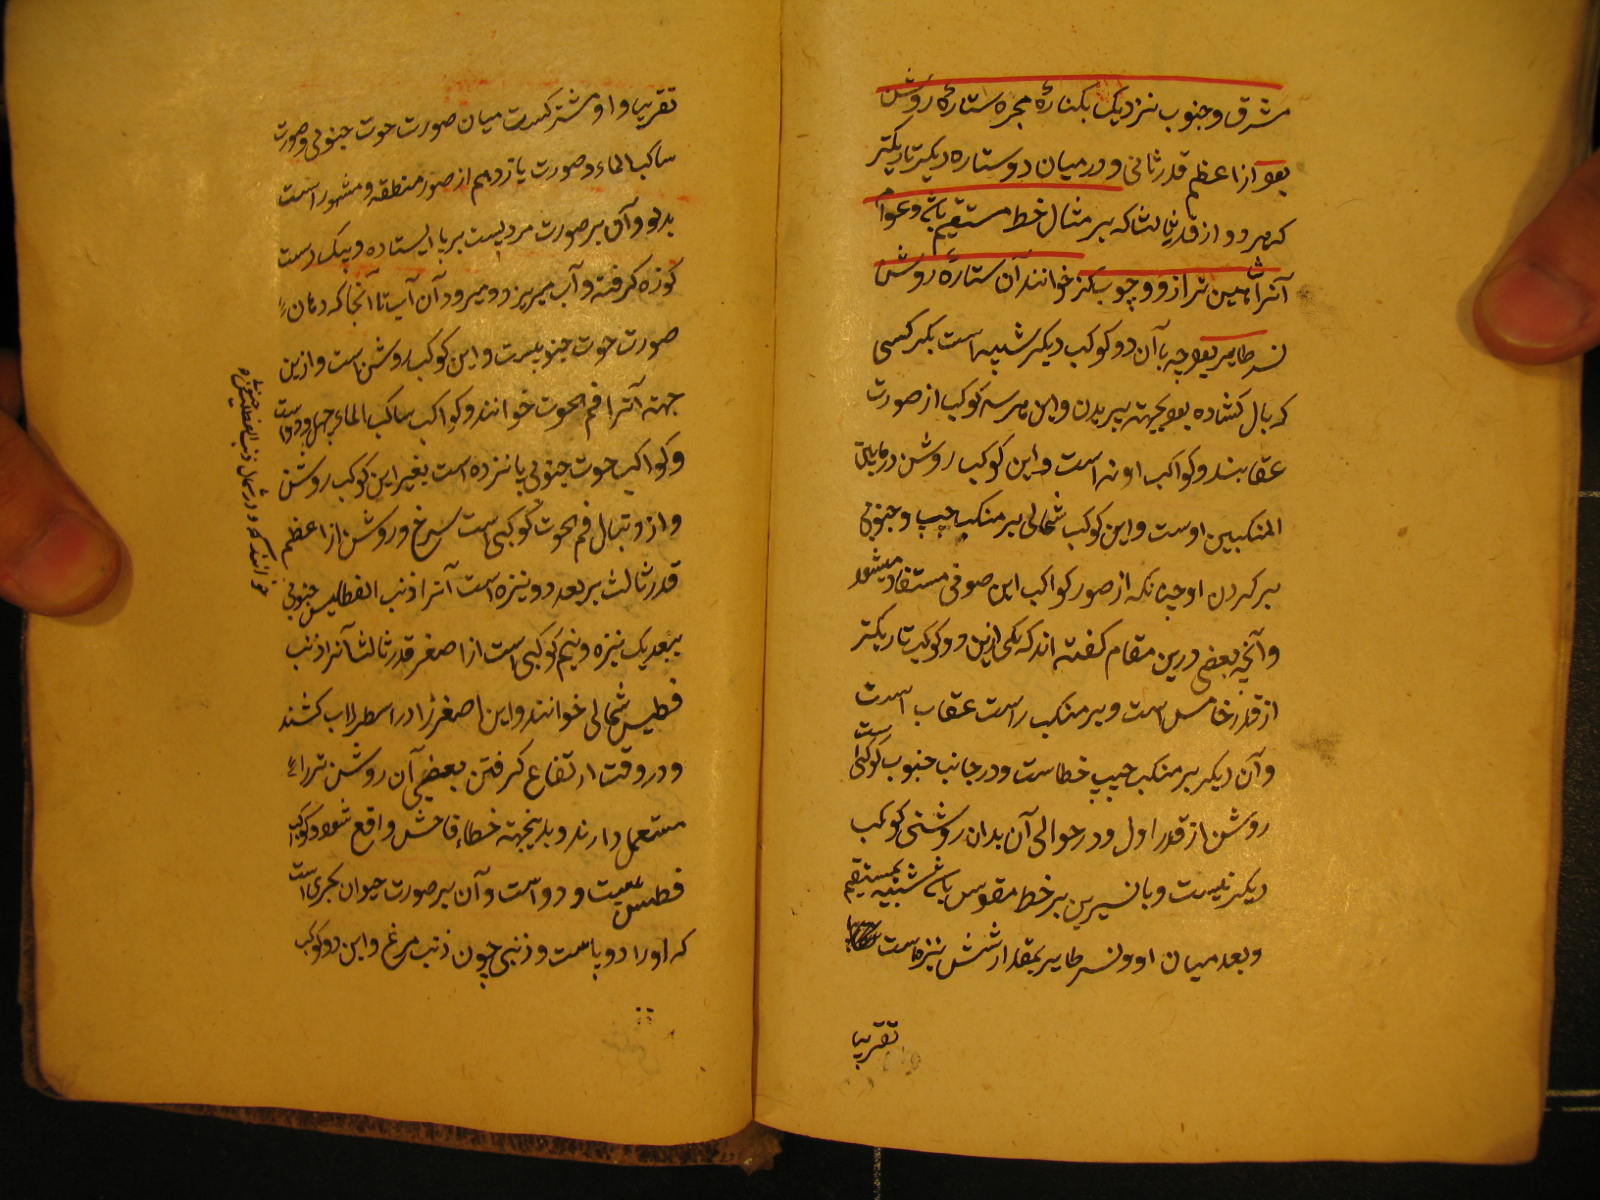 مشرق و جنوب نزدیک بکنارهٔ مجره ستارهٔ روشن
بود از اعظم قدر ثانی و در میان دو ستاره دیکر تاریکتر
که هر دو از قدر ثالث که بر مثال خط مستقیم باشد و عوام
آنرا شاهین ترازو و چوب کز خوانند آن ستارهٔ روشن
نسر طایر بود چه با آن دو کوکب دیکر شبیه است بکرکسی
که بال کشاده بود بجهته پریدن و این هر سه کوکب از صورت
عقابند و کواکب او نه است و این کوکب روشن در مابین
المنکبین اوست و این کوکب شمالی بر منکب چپ و جنوبی
بر کردن او چنانکه از صور کواکب ابن صوفی مستفاد میشود
و آنچه بعضی درین مقام کفته اند که یکی ازین دو کوکب تاریکتر
از قدر خامس است و بر منکب راست عقاب است
و آن دیکر بر منکب چپ خطاست و در جانب جنوب کوکبی است
روشن از قدر اول و در حوالی آن بدان روشنی کوکب
دیکر نیست و با نسرین بر خط مقوس باشد شبیه بمستقیم
و بعد میان او و نسر طایر بمقدار شش نیزه است
تقریبا
تقریبا و او مشترکست میان صورت حوت جنوبی و صورت
ساکب الماء و صورت یازدهم از صور منطقه و مشهور است
بدلو و آن بر صورت مردیست بر پا ایستاده و بیک دست
کوزه کرفته و آب میریزد و میرود آن آب تا آنجا که دهان
صورت حوت جنوبیست و این کوکب روشن است و ازین
جهته آنرا فم الحوت خوانند و کواکب ساکب الماء چهل و دو است
و کواکب حوت جنوبی یانزده است بغیر این کوکب روشن
و از دنبال فم الحوت کوکبی است سرخ و روشن از اعظم
قدر ثالث بر بعد دو نیزه است آنرا ذنب القطلیس جنوبی
خوانند که و در شمال ذنب القطلیس جنوبی
ببعد یک نیزه و نیم کوکبی است از اصغر قدر ثالث آنرا ذنب
قطیس شمالی خوانند و این اصغر را در اسطرلاب کشند
و در وقت ارتفاع کرفتن بعضی آن روشن تر را
مستعمل دارند و بدینجهته خطاء فاحش واقع شود و کواکب
قطیس بیست و دو است و آن بر صورت حیوان بحری است
که او را دو پاست و ذنبی چون ذنب مرغ و این دو کوکب